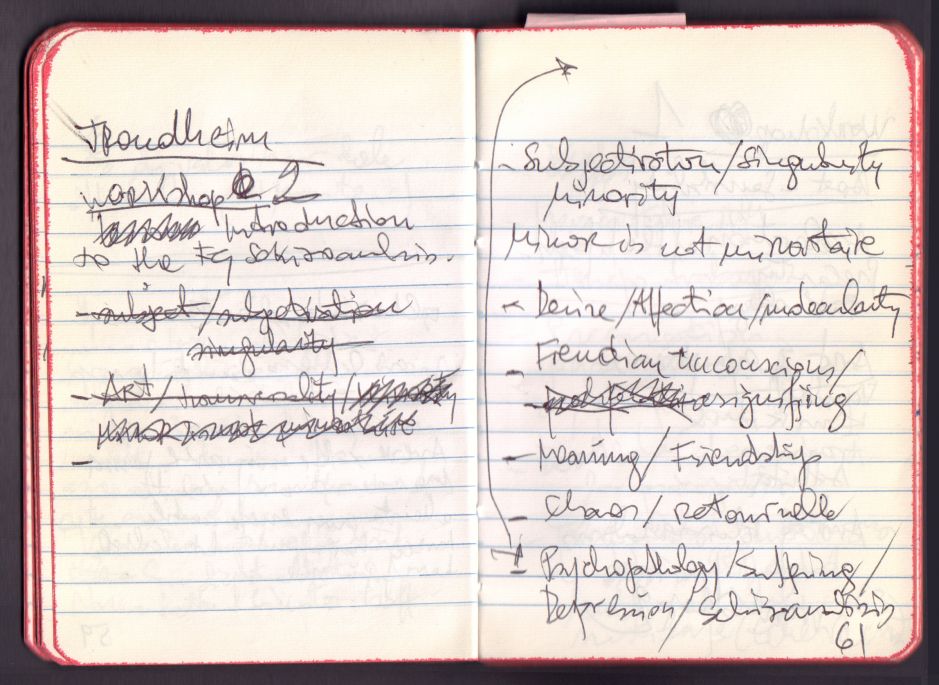 Trondheim
Workshop 2
Introduction
to the Fg Schizoanalisis.
- subject / subjetivation
singularity
- Art / transversality /
minor is not minoritaire
-
- Subjectivation / Singularity
minority
Minor is not minoritaire
- Desire / Affection / molecularity
- Freudian Unconscious /
- asignifying
- Meaning / Friendship
- Chaos / retournelle
- Psychopathology / Suffering /
Depression / Schizoanalisis
61